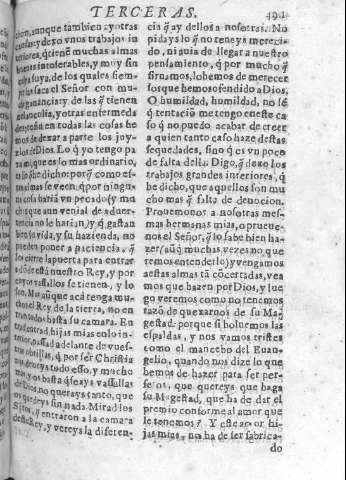 TERCERAS.
491
dien, aunque tambien ay otras
causas: y dexo vnos trabajos in
teriores, q̃ tienẽ muchas almas
buenas intolerables, y muy sin
culpa suya, de los quales siem
pre las saca el Señor con mu-
cha ganancia: y de las q̃ tienen
melancolia, y otras enfermeda
des, en todas las cosas he
mos de dexar a parte los joy
zios de Dios. Lo q̃ yo tengo pa
ra mi, que es lo mas ordinario,
es lo q̃ he dicho: porq̃ como es-
tas almas se veen, q̃ por ningu-
na cosa hariã vn pecado (y mu
chos que aun venial de aduer-
tencia no le harian) y q̃ gastan
bien su vida, y su hazienda, no
pueden poner a paciencia, q̃
les cierre la puerta para entrar
adõde està nuestro Rey, y por
cuyos vasallos se tienen, y lo
son. Mas aunque acà tenga mu
chos el Rey de la tierra, no en
tran todos hasta su camara. En
trad, entrad hijas mias en lo in-
terior, passad adelante de vues-
tras obrillas, q̃ por ser Christia
nas deueys todo esso, y mucho
mas, y os basta q̃ seays vasallas
de Dios, no querays tanto, que
os quedeys sin nada. Mirad los
Sãtos, q̃ entraron a la camara
deste Rey, y vereys la diferen-
cia q̃ ay dellos a nosotras. No
pidays lo q̃ no teneys mereci-
do, ni auia de llegar a nuestro
pensamiento, q̃ por mucho q̃
siruamos, lo hemos de merecer
los que hemos ofendido a Dios.
O humildad, humildad, no sè
q̃ tentaciõ me tengo en este ca
so q̃ no puedo acabar de creer
a quien tanto caso haze destas
sequedades, sino q̃ es vn poco
de falta della. Digo, q̃ dexo los
trabajos grandes interiores, q̃
he dicho, que aquellos son mu
cho mas q̃ falta de deuocion.
Prouemonos a nosotras mes-
mas hermanas mias, o prueue-
nos el Señor, q̃ lo sabe bien ha-
zer (aũq̃ muchas vezes no que
remos entenderlo) y vengamos
a estas almas tã cõcertadas, vea
mos que hazen por Dios, y lue
go veremos como no tenemos
razõ de quexarnos de su Ma-
gestad: porque si boluemos las
espaldas, y nos vamos tristes
como el mancebo del Euan-
gelio, quando nos dize lo que
hemos de hazer para ser per-
fetos, que quereys que haga
su Magestad, que ha de dar el
premio conforme al amor que
le tenemos? Y este amor hi-
jas mias, no ha de ser fabrica-
do